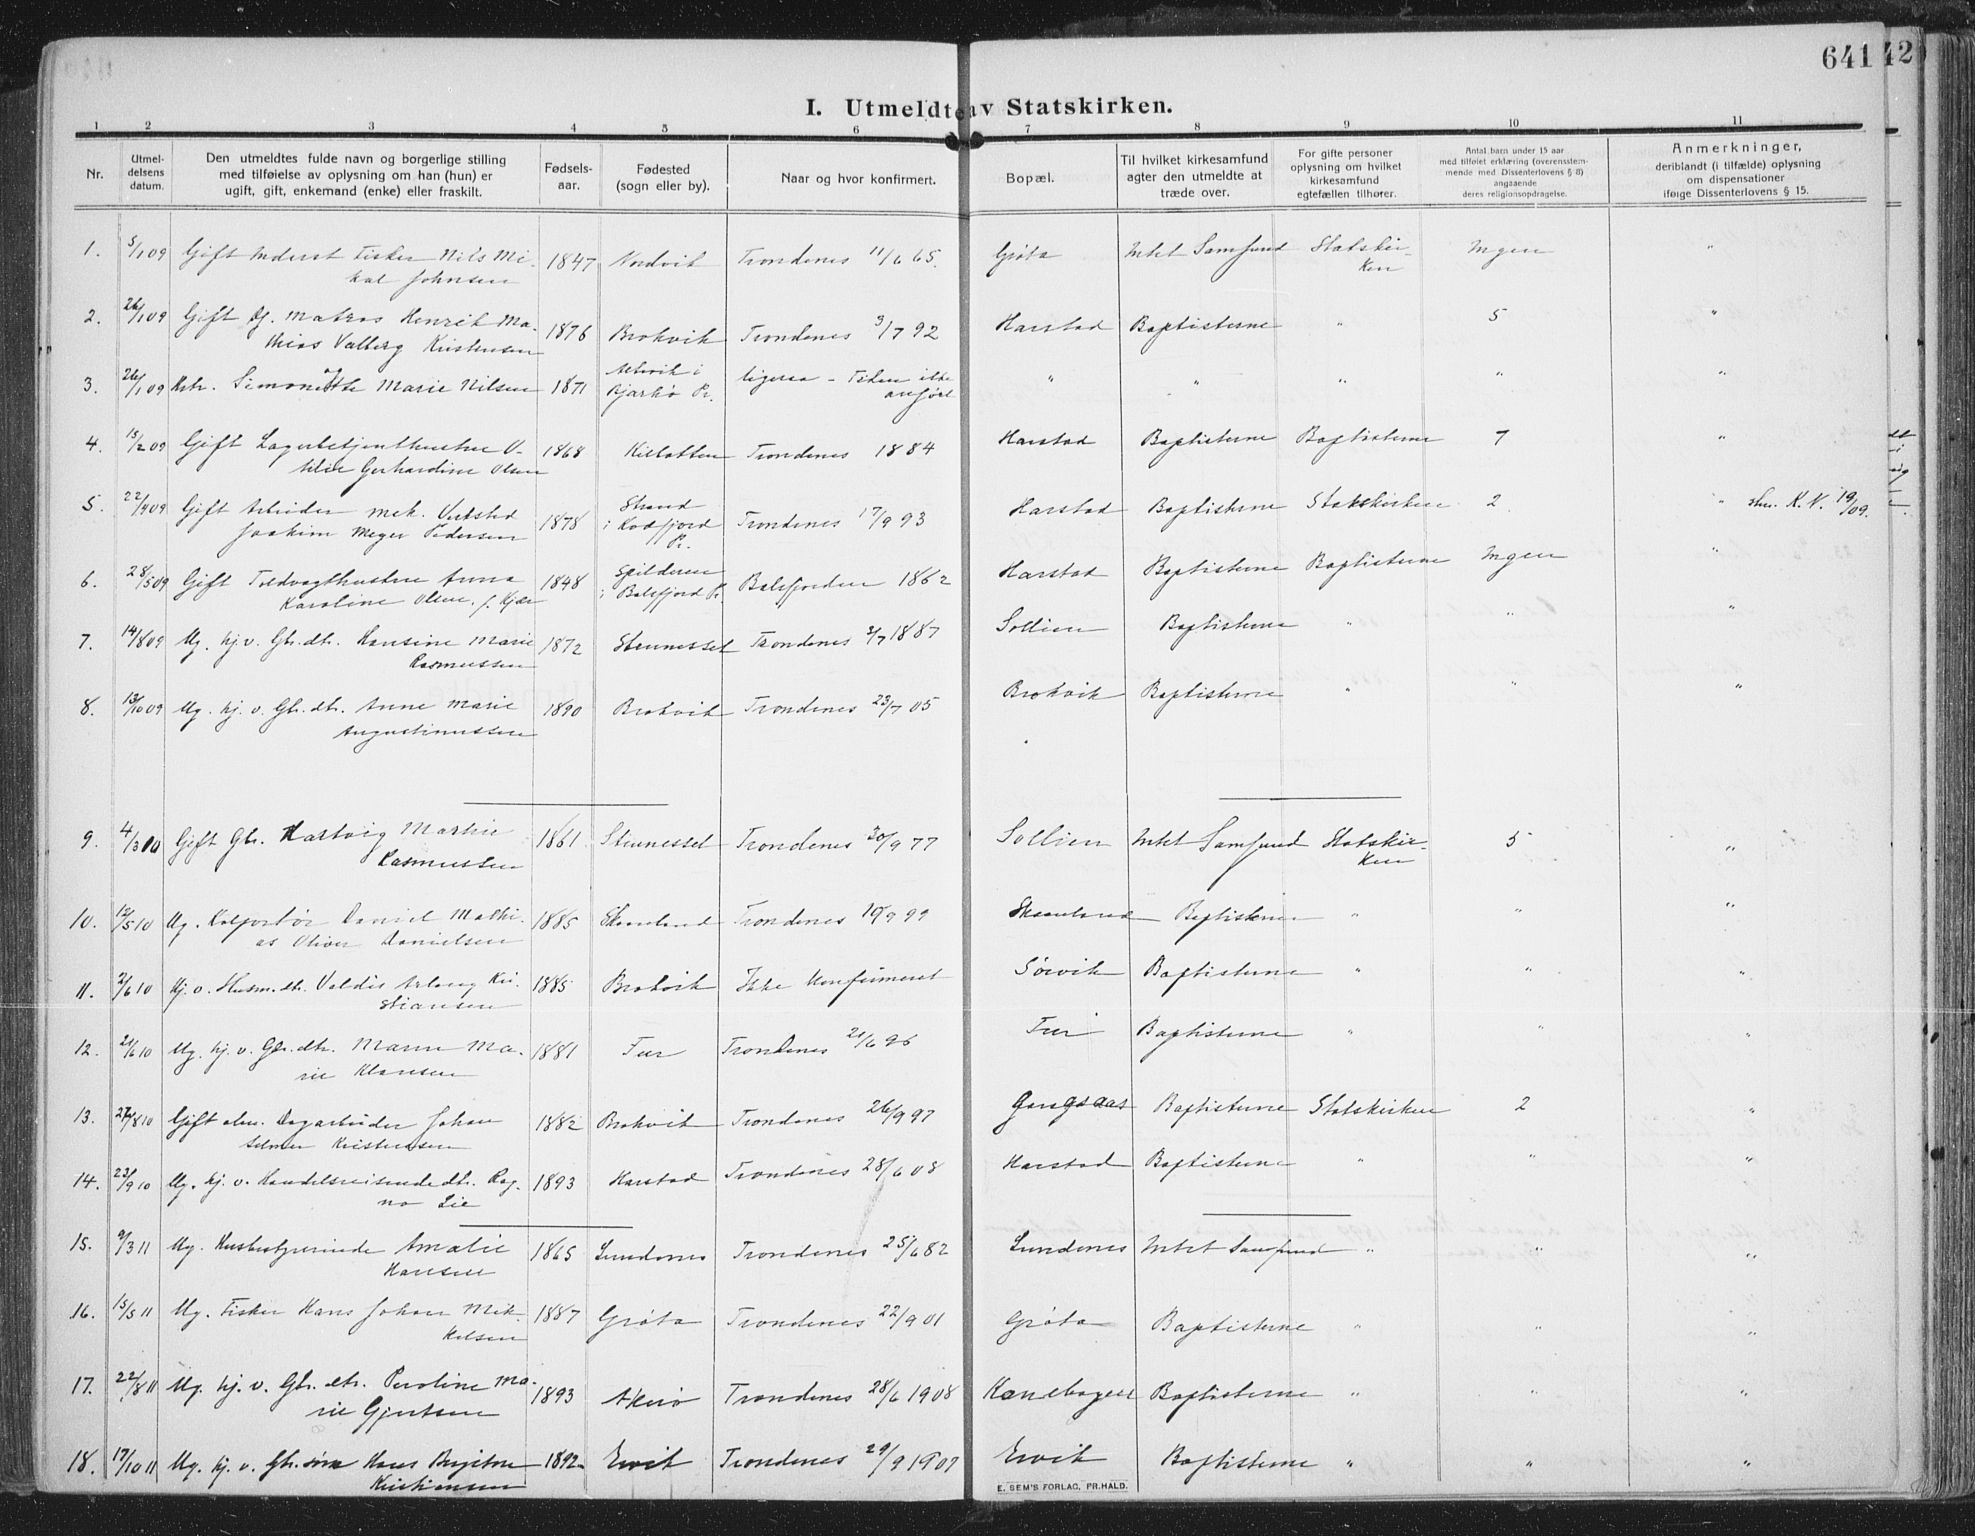 641
42
I. Utmeldte av Statskirken.
1 2 3 4 5 6 7 8 9 10 11
Nr.
Utmel-
delsens
datum.
Den utmeldtes fulde navn og borgerlige stilling
med tilføielse av oplysning om han (hun) er
ugift, gift, enkemand (enke) eller fraskilt.
Fødsels-
aar.
Fødested
(sogn eller by).
Naar og hvor konfirmert.
Bopæl.
Til hvilket kirkesamfund
agter den utmeldte at
træde over.
For gifte personer
oplysning om hvilket
kirkesamfund
egtefællen tilhører.
Antal barn under 15 aar
med tilføiet erklæring (overensstem-
mende med Dissenterlovens § 8)
angaaende
deres religionsopdragelse.
Anmerkninger,
deriblandt (i tilfælde) oplysning
om dispensationer
ifølge Dissenterlovens § 15.
1. 5/1 09 Gift Inderst Fisker Nils Mi- 1847 Nordvik Trondenes 11/6 65. Grøta Intet Samfund Statskir- Ingen "
kal Johnsen ken
2. 26/1 09 Gift Matros Henrik Ma- 1876 Brokvik Trondenes 3/7 92 Harstad Baptisterne " 5 "
thias Valberg Kristensen
3. 26/1 09 Hstr. Simonette Marie Nilsen 1871 i ligesaa - Tiden ikke " " " " "
Bjarkø Pr. anført
4. 15/2 09 Gift Lagerbetjenthustru O- 1868 Kilbotten Trondenes 1884 Harstad Baptisterne Baptisterne 7 "
tilie Gerhardine Olsen
5. 22/4 09 Gift Arbeider mek. Verksted 1878 Strand Trondenes 17/9 93 Harstad Baptisterne Statskirken 2 " skr. K. V. 19/09.
Joakim Meyer Pedersen i Kvæfjord
Pr.
6. 28/5 09 Gift Toldvagthustru Anna 1848 Spilderen Balsfjorden 1862 Harstad Baptisterne Baptisterne Ingen "
Karoline Olsen, f. Kjær i Balsfjord Pr.
7. 14/8 09 Ug. hj.v. Gbr.dtr. Hansine Marie 1872 Stennesset Trondenes 3/7 1887 Sollien Baptisterne " " "
Rasmussen
8. 13/10 09 Ug. hj. v. Gbr. dtr. Anne Marie 1890 Brokvik Trondenes 23/7 05 Brokvik Baptisterne " " "
Augustinussen
9. 4/3 10 Gift Gbr. Hartvig Martin 1861 Stennesset Trondenes 30/9 77 Sollien Intet Samfund Statskir- 5 "
Rasmussen ken
10. 12/5 10 Ug. Kolportør Daniel Mathi- 1885 Skaanland Trondenes 10/9 99 Skaanland Baptisterne " " "
as Oliver Danielsen
11. 2/6 10 hj. v. Husm.dtr. Valdis Aslaug Kri- 1885 Brokvik Ikke konfirmeret Sørvik Baptisterne " " "
stiansen
12. 21/6 10 Ug. hj. v. Gbr.dtr. Maren Ma- 1881 Fur Trondenes 21/6 96 Fur Baptisterne " " "
rie Klausen
13. 27/8 10 Gift Dagarbeider Johan 1882 Brokvik Trondenes 26/9 97 Gangsaas Baptisterne Statskirken 2 "
Selmer Kristensen
14. 23/9 10 Ug. hj. v. Handelsreisende dtr. Rag- 1893 Harstad Trondenes 28/6 08 Harstad Baptisterne " "
na Lie
15. 9/3 11 Ug. Husbestyrerinde Amalie 1865 Lundenes Trondenes 25/6 82 Lundenes Intet Samfund " " "
Hansen
16. 15/5 11 Ug. Fisker Hans Johan Mik- 1887 Grøta Trondenes 22/9 01 Grøta Baptisterne " " "
kelsen
17. 22/8 11 Ug. hj. v. Gbr. dtr. Peroline Ma- 1893 Akerø Trondenes 28/6 1908 Kanebogen Baptisterne " " "
rie Gjertsen
18. 17/10 11 Ug. hj. v. Gbr. søn Hans 1892 Ervik Trondenes 29/9 1907 Ervik Baptisterne " " "
Kristiansen
E. SEM'S FORLAG, PR.HALD.